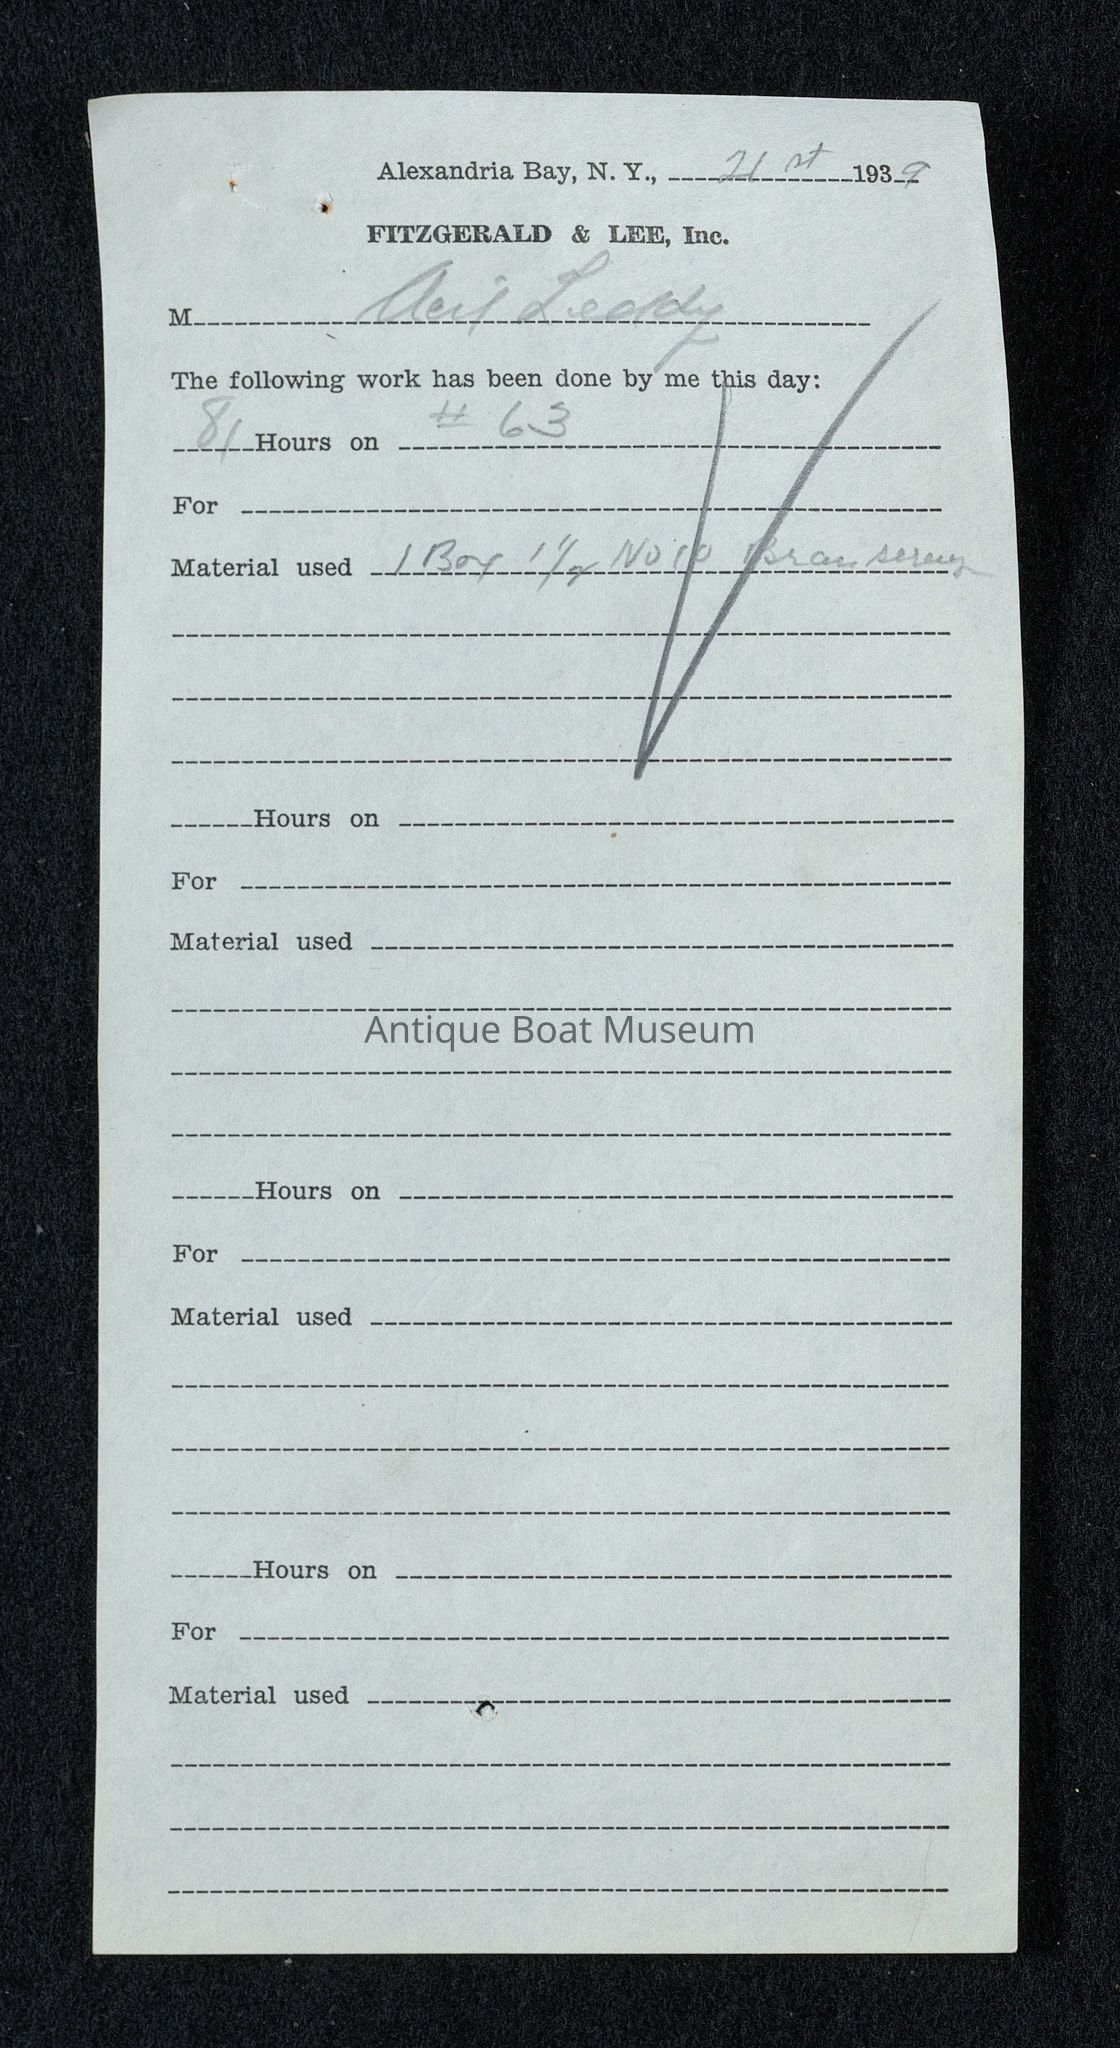 Alexandria Bay, N. Y., 21 st 1939
FITZGERALD & LEE, Inc.
M Leddy
The following work has been done by me this day:
8 Hours on # 63
For
Material used 1 Box 1 1/2 No 10 Bras screws
Hours on
For
Material used
Antique Boat Museum
Hours on
For
Material used
Hours on
For
Material used